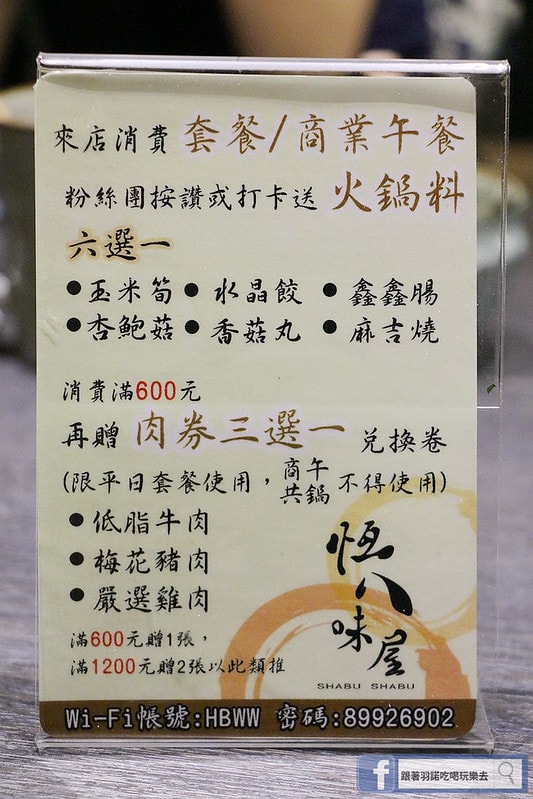 來店消費 套餐/商業午餐
粉絲團按讚或打卡送 火鍋料
六選一
●玉米筍 ●水晶餃 ●鑫鑫腸
●杏鮑菇 ●香菇丸 ●麻吉燒
消費滿600元
再贈 肉券三選一 兌換卷
(限平日套餐使用，商午共鍋不得使用)
●低脂牛肉
●梅花豬肉
●嚴選雞肉
滿600元贈1張，
滿1200元贈2張以此類推
恆八味屋
SHABU SHABU
Wi-Fi帳號:HBWW 密碼:89926902
f 跟著羽諾吃喝玩樂去